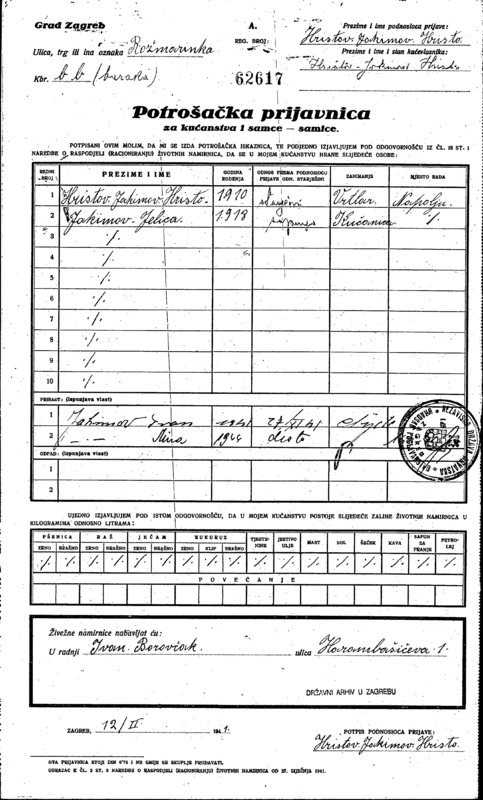 Grad Zagreb
A.
Prezime i ime podnosioca prijave:
Ulica, trg ili ina oznaka Rožmarinka
REG. BROJ:
Hristov-Jakimov Hristo
Prezime i ime i stan kućevlasnika:
Kbr. b b (baraka)
62617
Hristov-Jakimov Hristo
Potrošačka prijavnica
za kućanstva i samce — samice.
POTPISANI OVIM MOLIM, DA MI SE IZDA POTROŠAČKA ISKAZNICA, TE PODJEDNO IZJAVLJUJEM POD ODGOVORNOŠĆU IZ ČL. 18 ST. 1
NAREDBE O RASPODJELI (RACIONIRANJU) ŽIVOTNIH NAMIRNICA, DA SE U MOJEM KUĆANSTVU HRANE SLIJEDEĆE OSOBE:
REDNI BROJ PREZIME I IME GODINA ROĐENJA ODNOS PREMA PODNOSIOCU PRIJAVE ODN. STARJEŠINI ZANIMANJE MJESTO RADA
1 Hristov-Jakimov Hristo 1910 Vrtlar Na polju
2 Jakimov Jelica 1913 supruga Kućanica ./.
3 ./.
4 ./.
5 ./.
6 ./.
7 ./.
8 ./.
9 ./.
10 ./.
PRIRAST: (ispunjava vlast)
1 Jakimov Ivan 1941 27/XI 41 dijete
2 -.- Nina 1944 disto
OTPAD: (ispunjava vlast)
1
2
NEZAVISNA DRŽAVA HRVATSKA
UJEDNO IZJAVLJUJEM POD ISTOM ODGOVORNOŠĆU, DA U MOJEM KUĆANSTVU POSTOJE SLIJEDEĆE ZALIHE ŽIVOTNIH NAMIRNICA U
KILOGRAMIMA ODNOSNO LITRAMA:
PŠENICA RAŽ JEČAM KUKURUZ TJESTENINE JESTIVO ULJE MAST SOL ŠEĆER KAVA SAPUN ZA PRANJE PETROLEJ
ZRNO BRAŠNO ZRNO BRAŠNO ZRNO BRAŠNO ZRNO KLIP BRAŠNO
./. ./. ./. ./. ./. ./. ./. ./. ./. ./. ./. ./. ./. ./. ./. ./. ./.
POVEĆANJE
Živežne namirnice nabavljat ću:
U radnji Ivan Borovčak ulica Harambašićeva 1.
DRŽAVNI ARHIV U ZAGREBU
ZAGREB, 12/II 1941.
POTPIS PODNOSIOCA PRIJAVE:
Hristov-Jakimov Hristo.
OVA PRIJAVNICA STOJI DIN 0'75 I NE SMIJE SE SKUPLJE PRODAVATI.
OBRAZAC K ČL. 2 ST. 2 NAREDBE O RASPODJELI (RACIONIRANJU) ŽIVOTNIH NAMIRNICA OD 27. SIJEČNJA 1941.